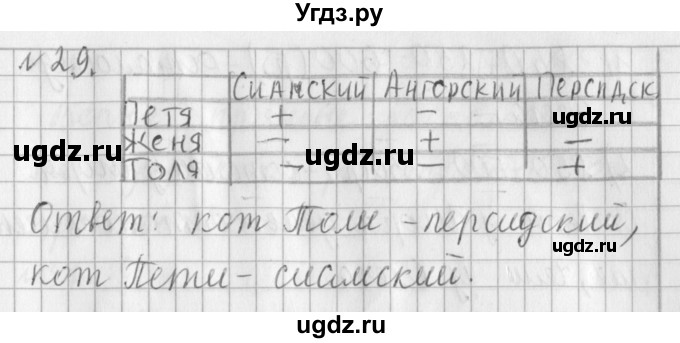 Угдз.ру
№ 29.
Сиамский Ангорский Персидск
Петя + – ugdz.ru
Женя – + –
ugdz.ru ugdz.ru
Толя – – +
Ответ: кот Толи - персидский,
ugdz.ru
кот Пети - сиамский.
ugdz.ru
ugdz.ru